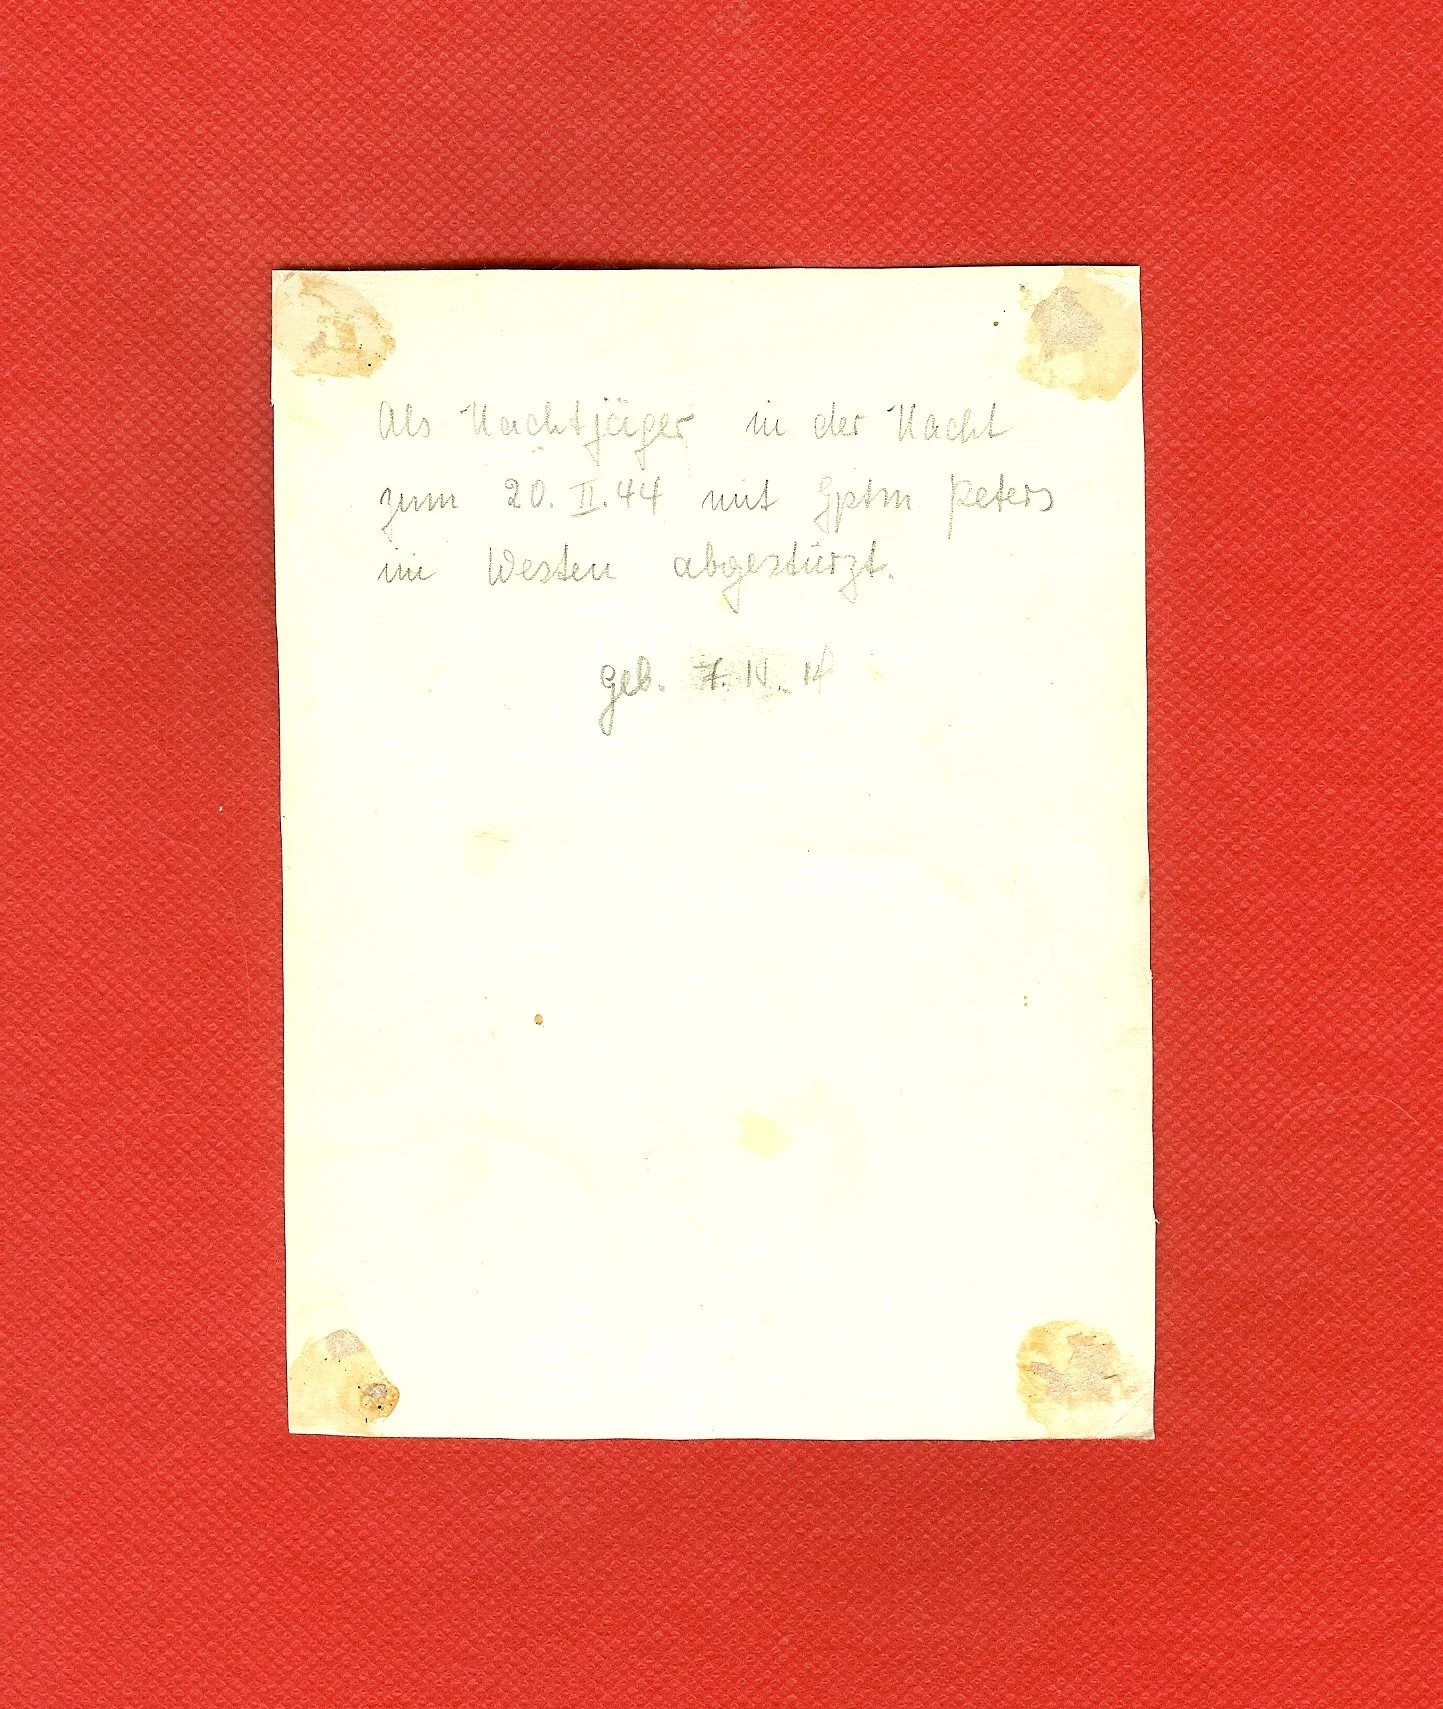 Als Nachtjäger in der Nacht
zum 20. II. 44 mit Hptm Peters
im Westen abgestürzt.
geb. 7. IV. 14